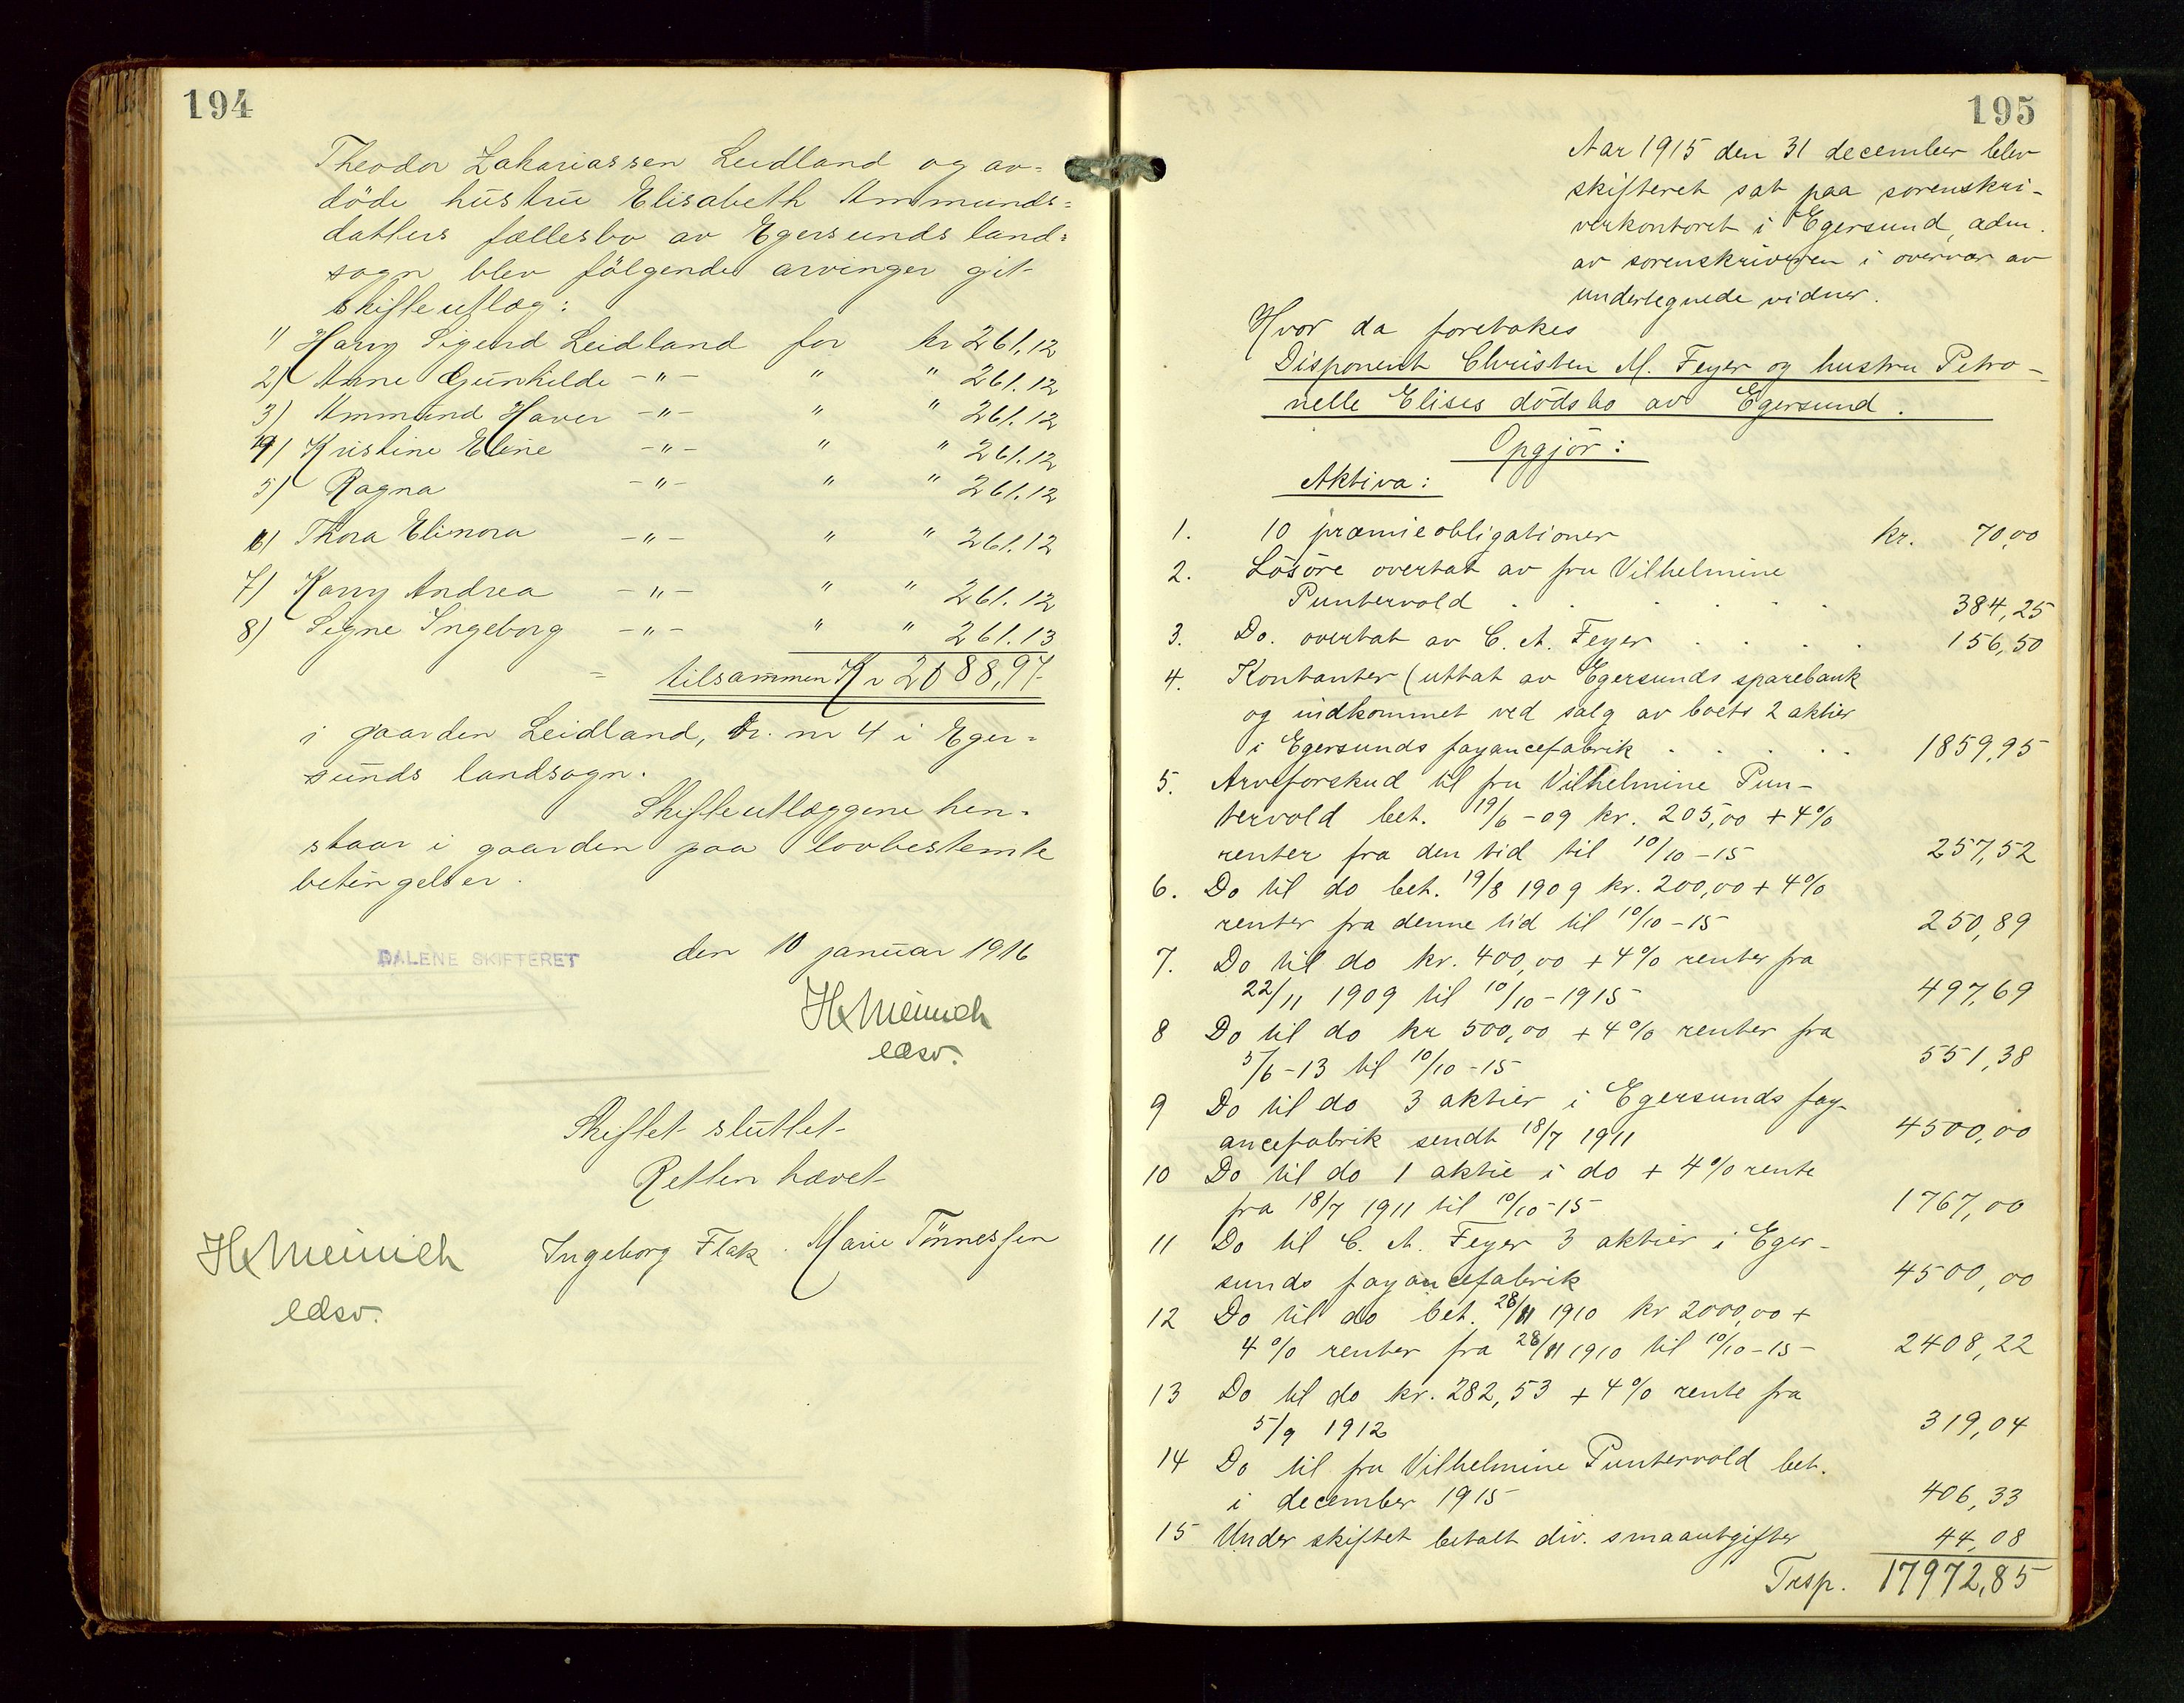 194
Theodor Zakariassen Leidland og av=
döde hustru Elisabeth Ammunds=
datters fællesbo av Egersunds land=
sogn blev fölgende arvinger git
skifteutlæg:
1) Harry Sigurd Leidland for kr 261.12
2) Anne Gunhilde -"- " " 261.12
3) Ammund Haver -"- " " 261.12
4) Kristine Eline -"- " " 261.12
5) Ragna -"- " " 261.12
6) Thora Elinora -"- " " 261.12
7) Karry Andrea -"- " " 261.12
8) Signe Ingeborg -"- " " 261.13
= tilsammen Kr 2088,97
i gaarden Leidland, br. nr 4 i Eger=
sunds landsogn.
Skifteutlæggene hen=
staar i gaarden paa lovbestemte
betingelser.
DALENE SKIFTERET den 10 januar 1916
H Meinich
edsv.
Skiftet sluttet
Retten hævet
H Meinich Ingeborg Flak. Marie Tönnessen
edsv.
195
Aar 1915 den 31 december blev
skifteret sat paa sorenskri-
verkontoret i Egersund, adm.
av sorenskriveren i overvær av
undertegnede vidner.
Hvor da foretokes
Disponent Christen M. Feyer og hustru Petro-
nelle Elises dödsbo av Egersund.
Opgjör:
Aktiva:
1. 10 præmieobligationer kr. 70,00
2. Lösöre overtat av fru Vilhelmine
Puntervold . . . . . . 384,25
3. Do. overtat av C. A. Feyer . . . . 156,50
4. Kontanter (uttat av Egersunds sparebank
og indkommet ved salg av boets 2 aktier
i Egersunds fayancefabrik . . . . . 1859,95
5. Arveforskud til fru Vilhelmine Pun-
tervold bet. 19/6 - 09 kr. 205,00 + 4%
renter fra den tid til 10/10 - 15 257,52
6. Do til do bet. 19/8 1909 kr. 200,00 + 4%
renter fra denne tid til 10/10 - 15 250,89
7. Do til do kr. 400,00 + 4% renter fra
22/11 1909 til 10/10 - 1915 497,69
8 Do til do kr 500,00 + 4% renter fra
5/6 - 13 til 10/10 - 15 551,38
9 Do til do 3 aktier i Egersunds fay-
ancefabrik sendt 18/7 1911 4500,00
10 Do til do 1 aktie i do + 4% rente
fra 18/7 1911 til 10/10 - 15 1767,00
11 Do til C. A. Feyer 3 aktier i Eger-
sunds fayancefabrik 4500,00
12 Do til do bet. 28/11 1910 kr 2000,00 +
4% renter fra 28/11 1910 til 10/10 - 15 - 2408,22
13 Do til do kr. 282,53 + 4% rente fra
5/9 1912 319,04
14 Do til fru Vilhelmine Puntervold bet.
i december 1915 406,33
15 Under skiftet betalt div. smaautgifter 44,08
Trsp. 17972,85